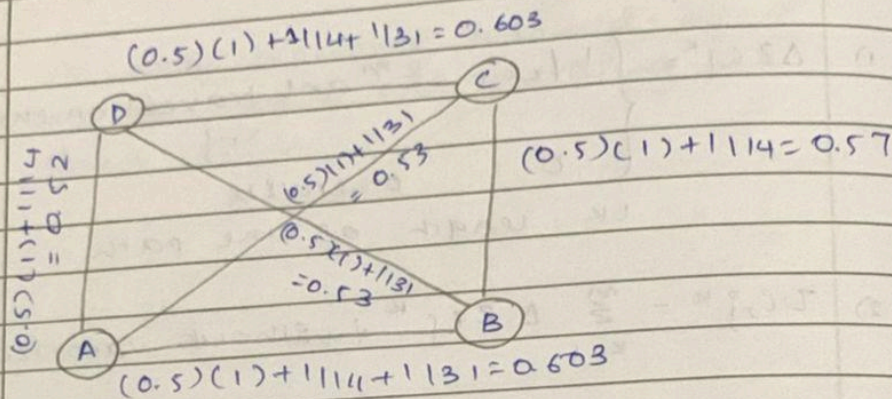 (0.5)(1)+1/14+1/31=0.603
D
C
(0.5)(1)+1/31
=0.53
(0.5)(1)+1/14=0.57
(0.5)(1)+1/14
=0.57
(0.5)(1)+1/31
=0.53
A
B
(0.5)(1)+1/14+1/31=0.603